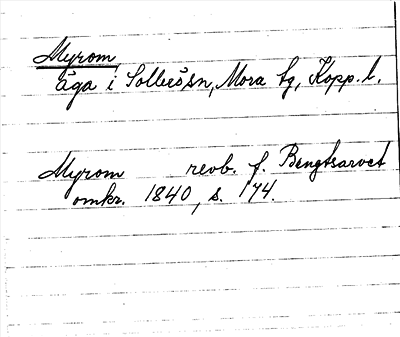 Myrom
äga i Sollerö sn, Mora tg, Kopp. l.
Myrom revb. f. Bengtsarvet
omkr. 1840, s. 174.